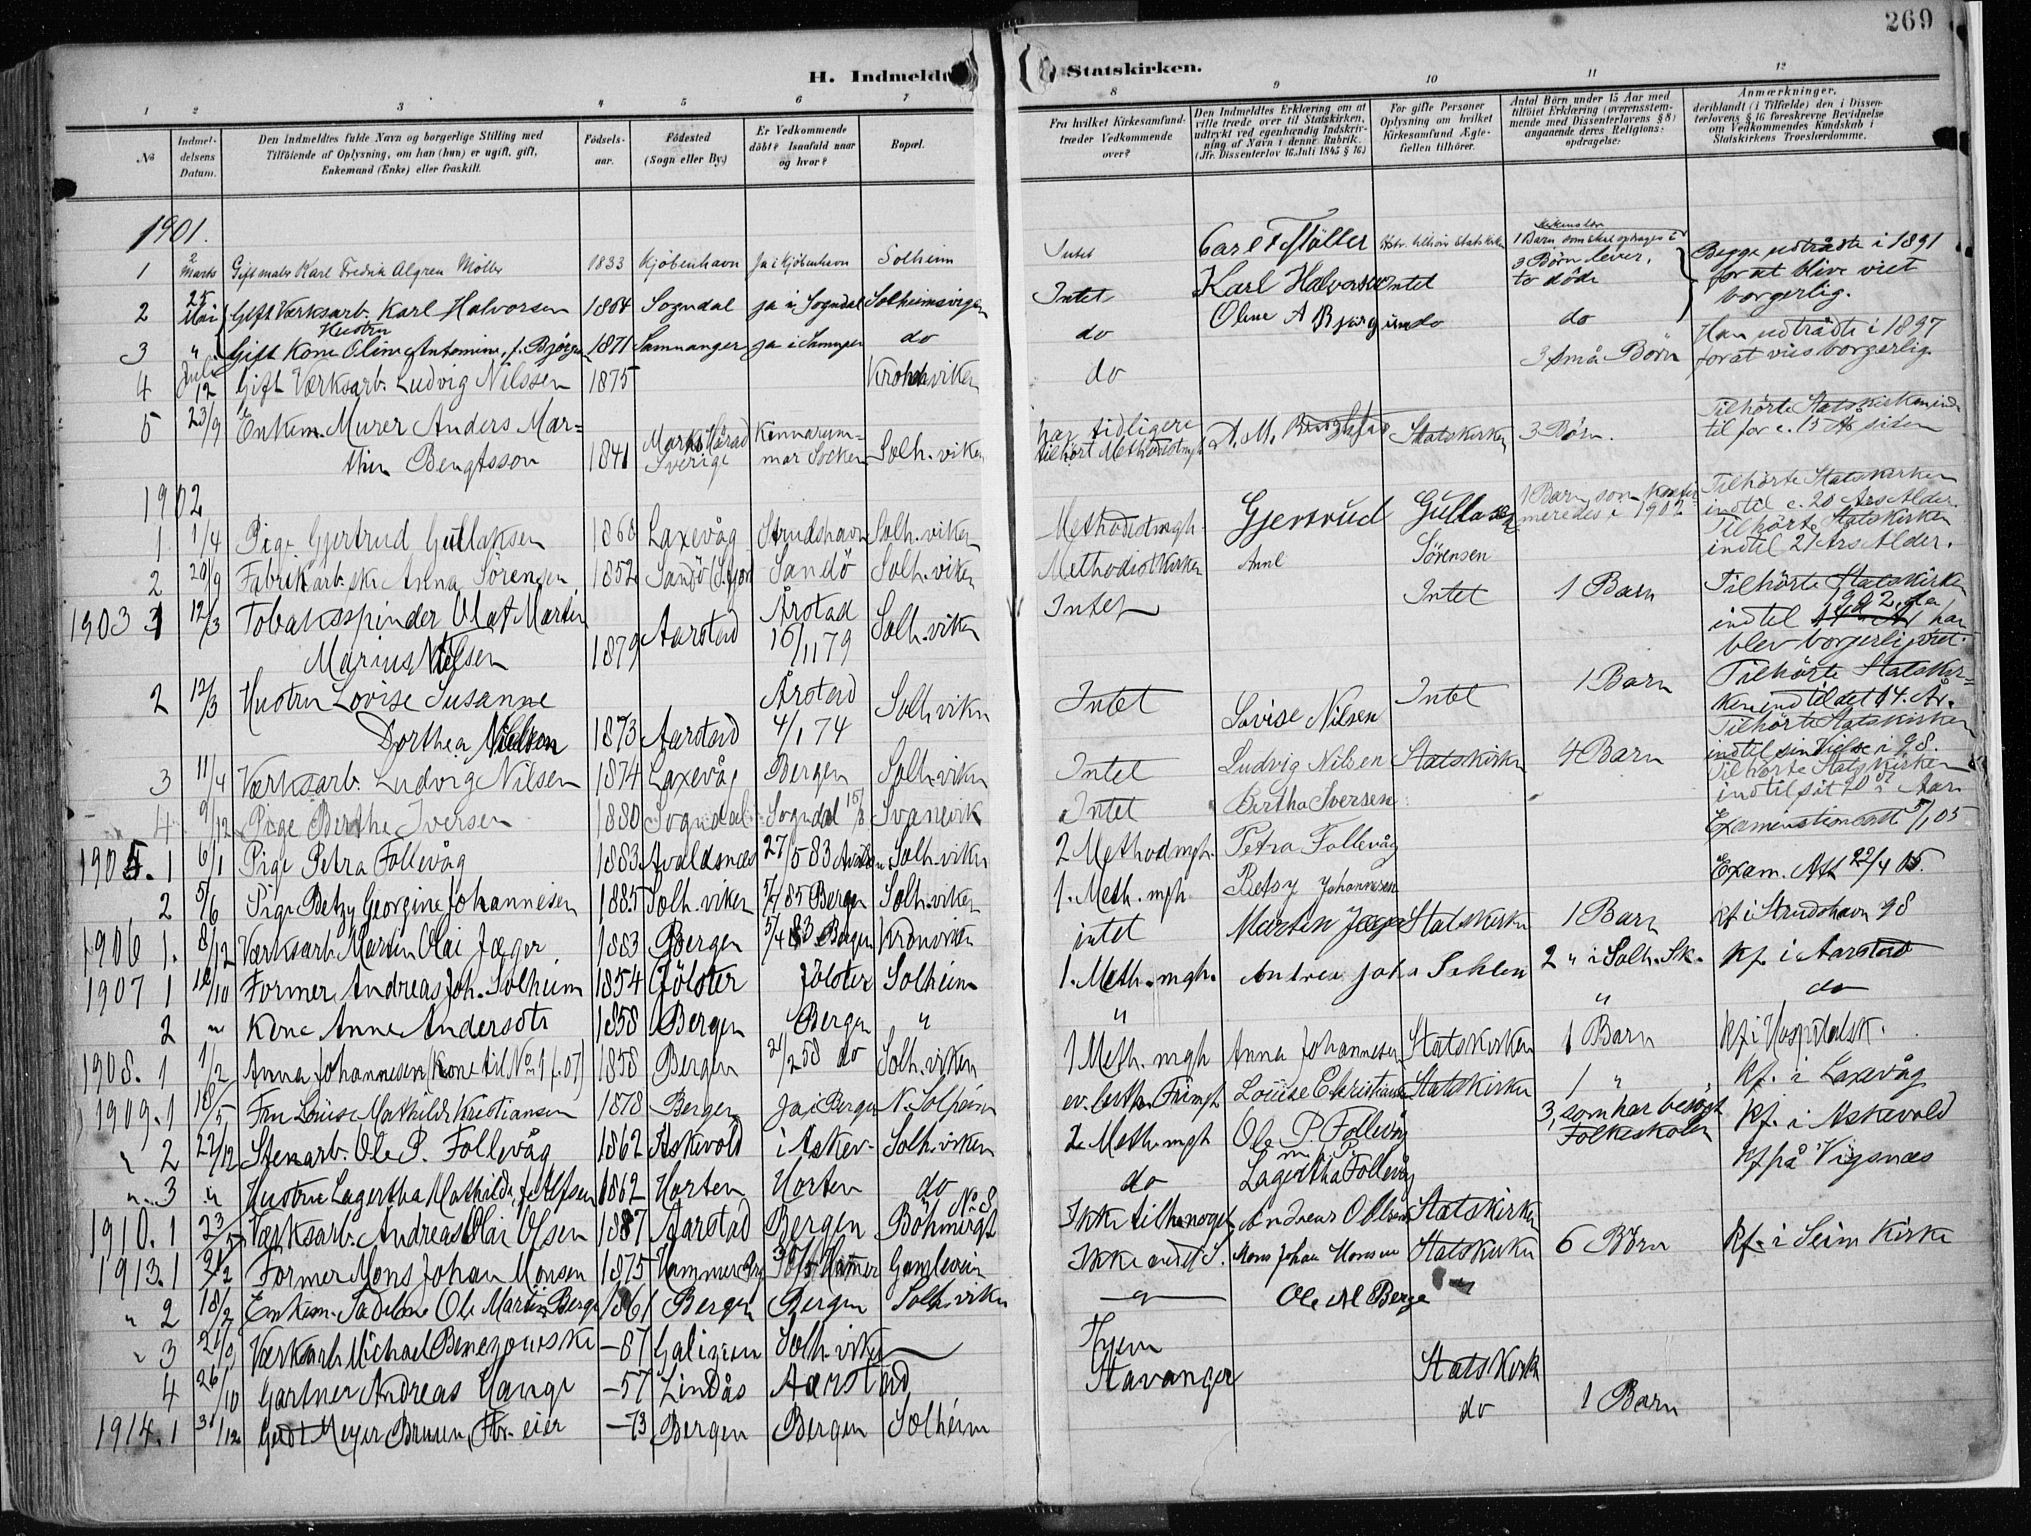 269
H. Indmeldt
Statskirken.
1 2 3 4 5 6 7 8 9 10 11 12
No
Indmel-
delsens
Datum.
Den Indmeldtes fulde Navn og borgerlige Stilling med
Tilföiende af Oplysning, om han (hun) er ugift, gift,
Enkemand (Enke) eller fraskilt.
Födsels-
aar.
Födested
(Sogn eller By.)
Er Vedkommende
döbt? Isaafald naar
og hvor?
Bopæl.
Fra hvilket Kirkesamfund
træder Vedkommende
over?
Den Indmeldtes Erklæring om at
ville træde over til Statskirken,
udtrykt ved egenhændig Indskriv-
ning af Navn i denne Rubrik.
(Jfr. Dissenterlov 16 Juli 1845 § 16)
For gifte Personer
Oplysning om hvilket
Kirkesamfund Ægte-
fællen tilhörer.
Antal Börn under 15 Aar med
tilföiet Erklæring (overensstem-
mende med Dissenterlovens § 8)
angaaende deres Religions-
opdragelse.
Anmærkninger,
deriblandt (i Tilfælde) den i Dissen-
terlovens § 16 foreskrevne Bevidnelse
om Vedkommendes Kundskab i
Statskirkens Troeslærdomme.
1901.
1 2 Marts Gift maler Karl Fredrik Algren Møller 1833 Kjöbenhavn Ja i Kjöbenhavn Solheim Intet Carl F Möller Hstr. tilhörer Statskirken 1 Barn som skal opdrages i Kirkens lære Begge udtraadte i 1891
2 25 Mai Gift Værksarb. Karl Halvorsen 1864 Sogndal ja i Sogndal Solheimsvigen Intet Karl Halvorsen Intet 3 Börn lever, to döde for at blive viet borgerlig.
3 " Gift Kone Hustru Oline Antomine, f. Bjørge 1871 Samnanger ja i Samnanger do do Oline A Bjørge do do
4 Juli 12 Gift Værksarb. Ludvig Nilssen 1875 Krohnviken do 3 små Børn Han udtrådte i 1897 for at vies borgerlig.
5 23/9 Enkem. Murer Anders Mar=
thin Bengtsson 1841 Marks Härad Sverige Kinnarum=mar Socken Solh.viken har tidligere tilhört Methodistmgh A. M. Statskirken 3 Børn. Tilhörte Statskirken ind til for c. 15 År siden
1902
1 1/4 Pige Gjertrud Gullaksen 1868 Laxevåg Strudshavn Solh.viken Methodistmgh. Gjertrud Gullaksen 1 Barn som konfir meredes i 1902 Tilhörte Statskirken indtil c. 20 Ars Alder.
2 29/9 Fabrikarb.ske Anna Sörensen 1852 Sandö Sandö Solh.viken Methodistkirken Anne Sörensen Tilhörte Statskirken indtil 21 Ars Alder.
1903 1 12/3 Tobaksspinder Olaf Martin
Marius Nilsen 1879 Aarstad Årstad 16/11 79 Solh.viken Intet Intet 1 Barn Tilhörte Statskirken indtil 1902, da han blev borgerlig viet.
2 12/3 Hustru Lovise Susanne
Dorthea Nielsen 1873 Aarstad Årstad 4/1 74 Solh.viken Intet Lovise Nilsen Intet 1 Barn Tilhörte Statskir=ken indtil det 14. År.
3 11/4 Værksarb. Ludvig Nilsen 1874 Laxevåg Bergen Solh.viken Intet Ludvig Nilsen Statskirken 4 Barn Tilhörte Statskirken indtil sin Vielse i 98.
4 9/12 Pige Berthe Iversen 1880 Sogndal Sogndal 15/8 Svanevik Intet Birtha Iversen Tilhörte Statskirken indtil sit 20 de Aar
1905. 1 6/1 Pige Petra Follevåg 1883 Avaldsnæs 27/5 83 Solh.viken 2 Methodmgh. Petra Follevåg Examinationsatt 5/1 05
2 5/6 Pige Betzy Georgine Johannesen 1885 Solh.viken 5/7 85 Bergen Solh.viken 1. Meth. mgh. Betsy Johannesen Exam. Att 22/4 05.
1906 1. 8/12 Værksarb. Martin Olai Jæger 1883 Bergen 5/4 83 Bergen Kronviken intet Martin Jæger Statskirken 1 Barn Kf i Strudshavn 98
1907 1 18/10 Former Andreas Joh. Solheim 1854 Jölster Jölster Solheim 1. Meth. mgh. Andrea Joh. Solheim 2 " i Solh. Sk. Kf. i Aarstad
2 " Kone Anne Andersdtr 1858 Bergen Bergen " " " do
1908. 1 1/2 Anna Johannesen (Kone til No 1 f. 07) 1858 Bergen 21/2 58 do Solh.viken 1 Meth. mgh Anna Johannesen Statskirken 1 Barn Kf i Hospitalsk.
1909. 1 18/5 Fru Louise Mathilde Kristiansen 1878 Bergen Ja i Bergen N. Solheim ev. luth. Frimgh Louise Christiansen Statskirken 1 " Kf. i Laxevåg
" 2 22/12 Stenarb. Ole P. Follevåg 1862 Askevold i Askev. Solh.viken 2 Meth. mgh Ole P. Follevåg 3, som har besøgt Folkeskolen Kf. i Askevold
" 3 " Hustru Lagertha Mathilde, f. Alfsen 1862 Horten Horten do do Lagertha Follevåg Kf på Vigsnæs
1910. 1 23/5 Værksarb. Andreas Olai Olsen 1887 Aarstad Bergen Böhmergt No 8 Ikke tilh. noget Andreas O Olsen Statskirken
1913. 1 21/2 Former Mons Johan Monsen 1875 Hammer 30/5 Hammer Gamleveien Ikke Mons Johan Monsen Statskirken 6 Børn Kf. i Seim Kirke
" 2 18/7 Enkem. Sadelm. Ole Martin Berge 1861 Bergen Bergen Solh.viken " Ole M Berge "
" 3 21/9 Værksarb Michael -87 Galizien Solh.viken
4 26/10 Gartner Andreas Hauge -57 Lindås Aarstad Stavanger Statskirk
1914. 1 31/12 Gerdt Meyer Bruun, Fbr. eier -73 Bergen Bergen Solheim do 1 Barn